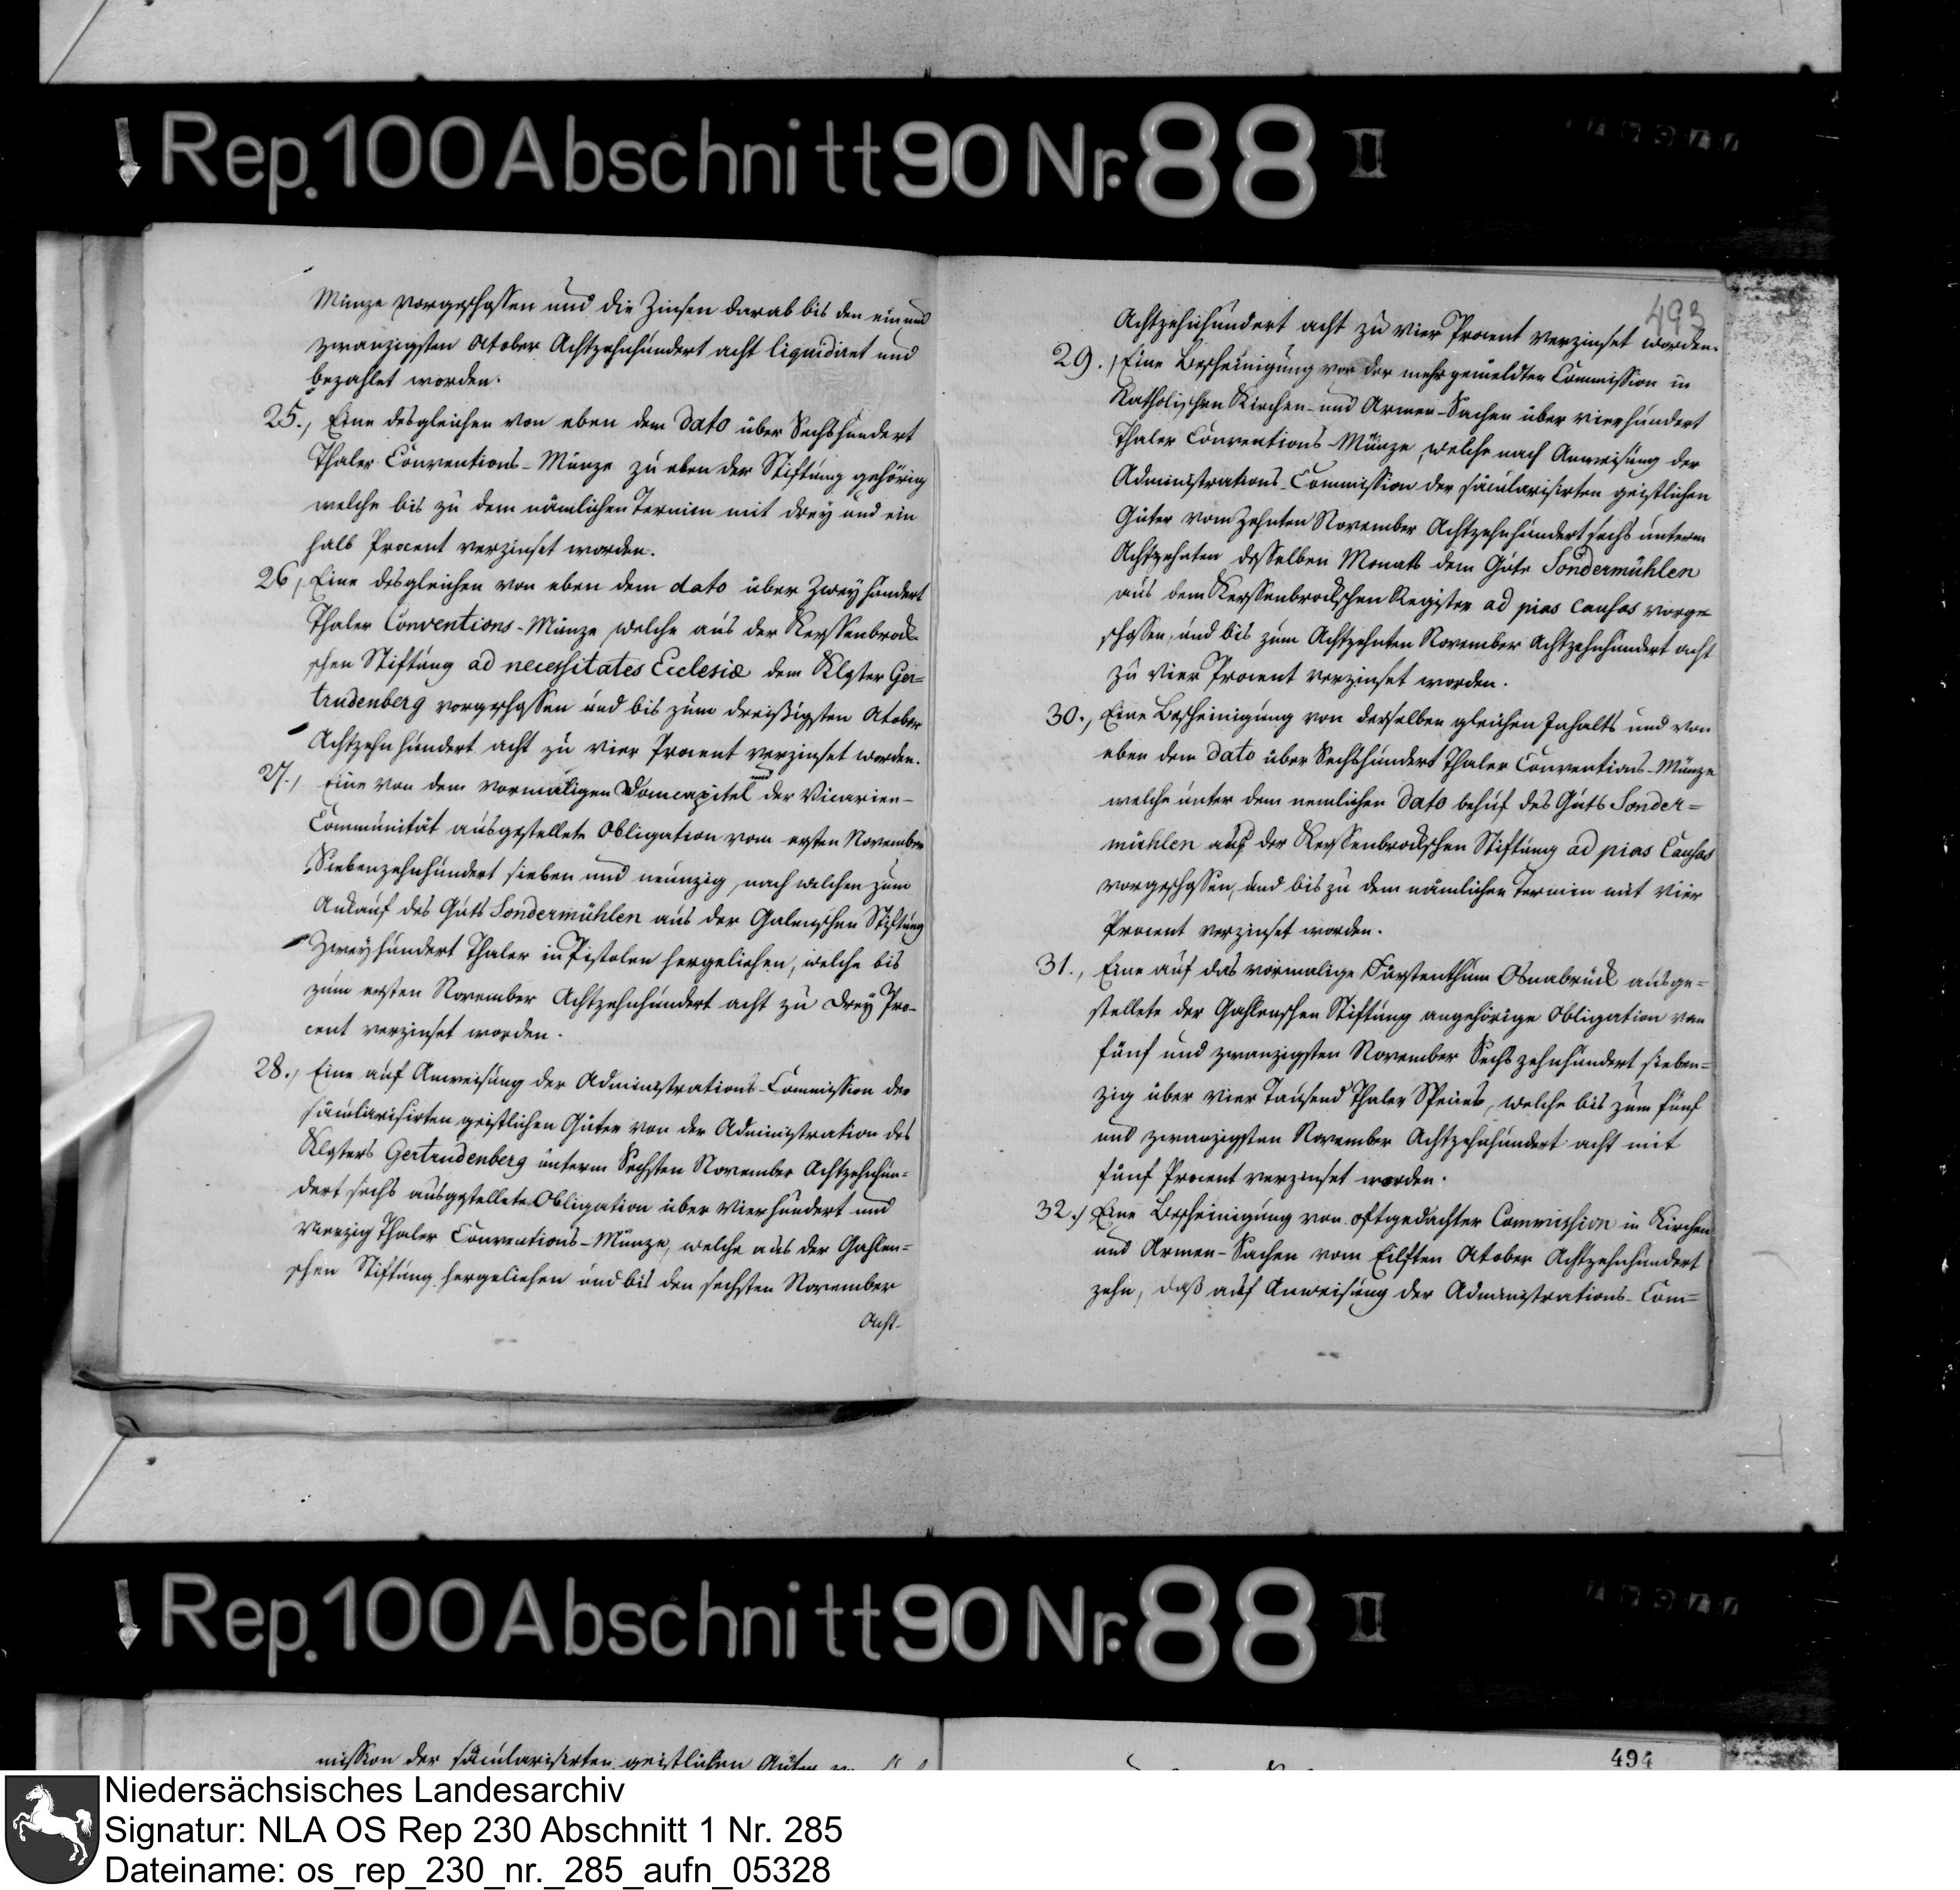 Rep. 100 Abschnitt 90 Nr. 88 II
Münze vorgeschossen und die Zinsen darab bis den ein und
zwanzigsten October Achtzehnhundert acht liquidiret und
bezahlet worden.
25., Eine desgleichen von eben dem dato über Sechshundert
Thaler Conventions-Münze zu eben der Stiftung gehörig
welche bis zu dem nämlichen Termin mit drey und ein
halb Procent verzinset worden.
26, Eine desgleichen von eben dem dato über Zweyhundert
Thaler Conventions-Münze welche aus der Kerssenbrock-
schen Stiftung ad necessitates Ecclesiæ dem Kloster Ger=
trudenberg vorgeschossen und bis zum dreißigsten October
Achtzehnhundert acht zu vier Procent verzinset worden.
27., Eine von dem vormaligen Domcapitel und der Vicarien-
Communität ausgestellete Obligation vom ersten November
Siebenzehnhundert sieben und neunzig, nach welchen zum
Ankauf des Guts Sondermühlen aus der Galenschen Stiftung
Zweyhundert Thaler in Pistolen hergeliehen, welche bis
zum ersten November Achtzehnhundert acht zu drey Pro-
cent verzinset worden.
28., Eine auf Anweisung der Administrations-Commission der
säcularisirten geistlichen Güter von der Administration des
Klosters Gertrudenberg unterm Sechsten November Achtzehnhun-
dert sechs ausgestellete Obligation über Vierhundert und
Vierzig Thaler Conventions-Münze, welche aus der Gahlen=
schen Stiftung hergeliehen und bis den sechsten November
Acht-
493
Achtzehnhundert acht zu vier Procent verzinset worden.
29., Eine Bescheinigung von der mehrgemeldten Commission in
Katholischen Kirchen- und Armen-Sachen über vierhundert
Thaler Conventions-Münze, welche nach Anweisung der
Administrations-Commission der säcularisirten geistlichen
Güter vom zehnten November Achtzehnhundert sechs unterm
Achtzehnten desselben Monats dem Gute Sondermühlen
aus dem Kerssenbrockschen Register ad pias causas vorge=
schossen, und bis zum Achtzehnten November Achtzehnhundert acht
zu vier Procent verzinset worden.
30., Eine Bescheinigung von derselben gleichen Inhalts und von
eben dem dato über Sechshundert Thaler Conventions-Münze
welche unter dem nemlichen dato behuf des Guts Sonder=
mühlen aus der Kerssenbrockschen Stiftung ad pias Causas
vorgeschossen, und bis zu dem nämlichen Termin mit vier
Procent verzinset worden.
31., Eine auf das vormalige Fürstenthum Osnabrück ausge=
stellete der Gahlenschen Stiftung angehörige Obligation von
fünf und zwanzigsten November Sechszehnhundert sieben=
zig über vier Tausend Thaler Species, welche bis zum fünf
und zwanzigsten November Achtzehnhundert acht mit
fünf Procent verzinset worden.
32., Eine Bescheinigung von oftgedachter Commission in Kirchen
und Armen-Sachen vom Eilften October Achtzehnhundert
zehn, daß auf Anweisung der Administrations-Com=
Rep. 100 Abschnitt 90 Nr. 88 II
494
mission der säcularisirten geistlichen Güter
Niedersächsisches Landesarchiv
Signatur: NLA OS Rep 230 Abschnitt 1 Nr. 285
Dateiname: os_rep_230_nr._285_aufn_05328